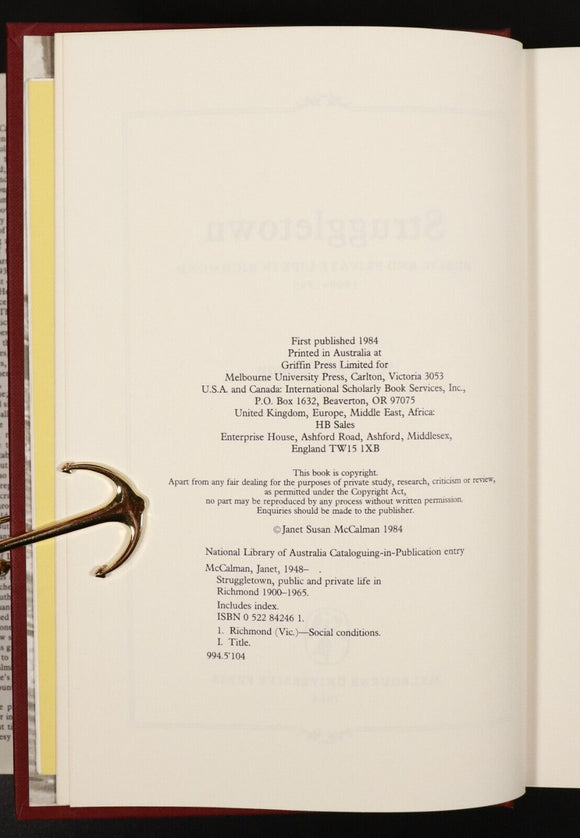 First published 1984
Printed in Australia at
Griffin Press Limited for
Melbourne University Press, Carlton, Victoria 3053
U.S.A. and Canada: International Scholarly Book Services, Inc.,
P.O. Box 1632, Beaverton, OR 97075
United Kingdom, Europe, Middle East, Africa:
HB Sales
Enterprise House, Ashford Road, Ashford, Middlesex,
England TW15 1XB
This book is copyright.
Apart from any fair dealing for the purposes of private study, research, criticism or review,
as permitted under the Copyright Act,
no part may be reproduced by any process without written permission.
Enquiries should be made to the publisher.
©Janet Susan McCalman 1984
National Library of Australia Cataloguing-in-Publication entry
McCalman, Janet, 1948– .
Struggletown, public and private life in
Richmond 1900–1965.
Includes index.
ISBN 0 522 84246 1.
1. Richmond (Vic.)—Social conditions.
I. Title.
994.5'104